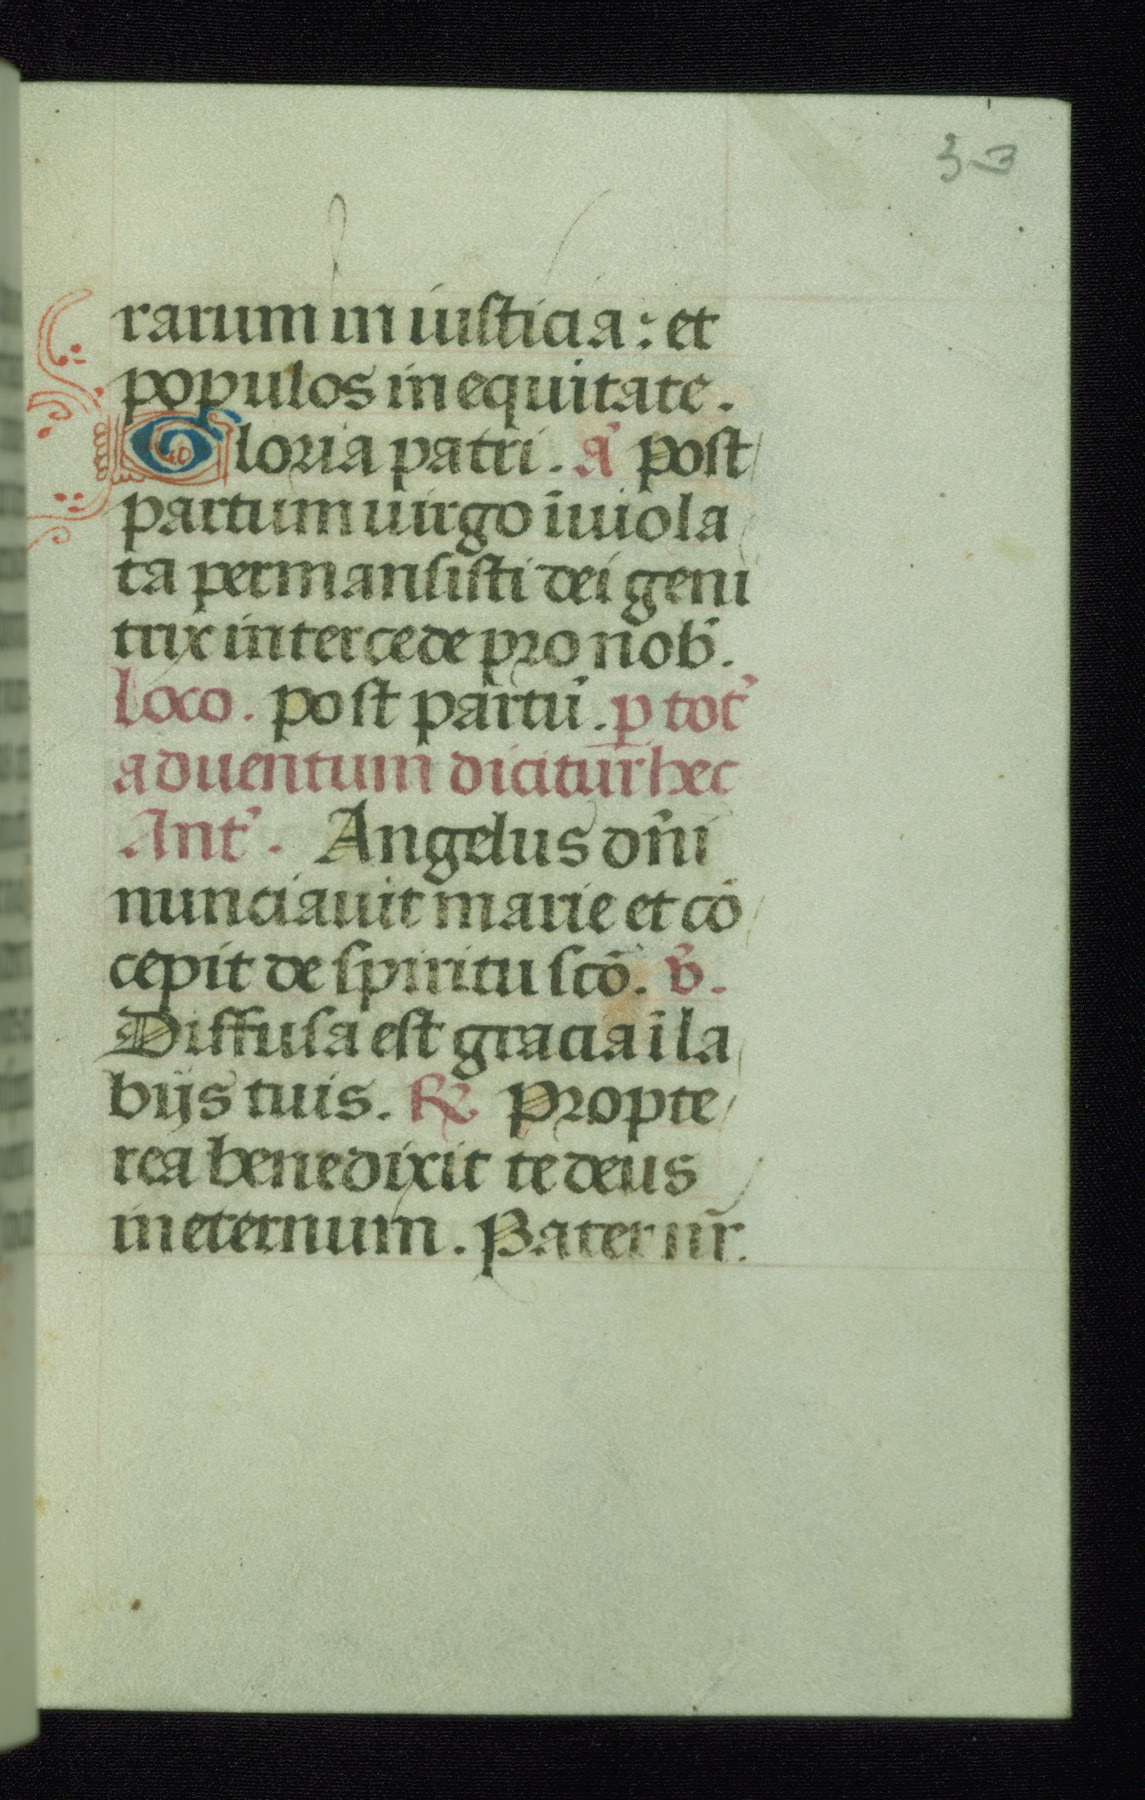 33
rarum in iusticia: et
populos in equitate.
Gloria patri. a᷒ post
partum uirgo īuiola
ta permansisti dei geni
trix intercede pro nob̄.
loco. post partū. p̱ tot᷒
aduentum dicitur hec
Ant᷒. Angelus dn̄i
nunciauit marie et cō
cepit de spiritu scō. v̄.
Diffusa est gracia ī la
bijs tuis. ℟ Propte
rea benedixit te deus
in eternum. Pater nr̄.